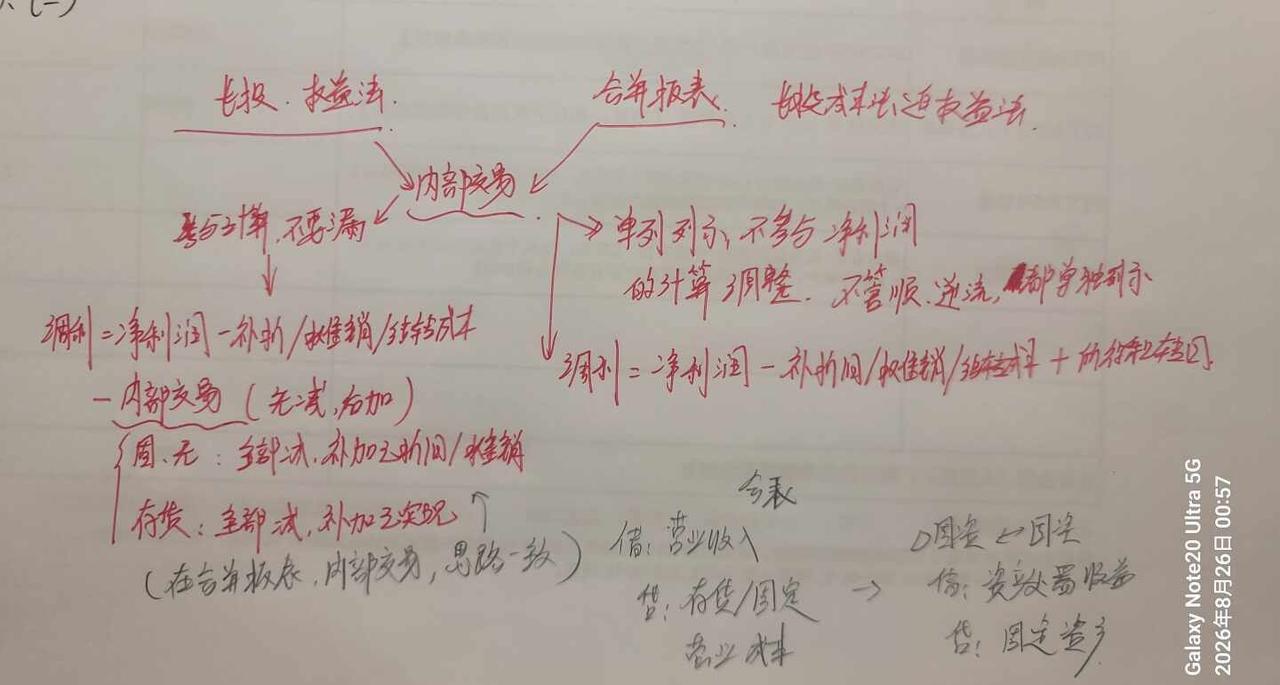 (一)
长投、权益法.
合并报表. 长投成本法追权益法.
内部交易
参与计算,不要漏
单列列示,不参与净利润
的计算调整. 不管顺、逆流,都单独列示
调利=净利润-补折/权摊销/结转成本
-内部交易(先减,后加)
调利=净利润-补折旧/权摊销/结转成本+所得税
固、无:全部减,补加已折旧/摊销
存货:全部减,补加已实现
(在合并报表,内部交易,思路一致)
合表
借:营业收入
贷:存货/固定
营业成本
→
固资←固资
借:资产处置收益
贷:固定资产
Galaxy Note20 Ultra 5G
2026年8月26日 00:57